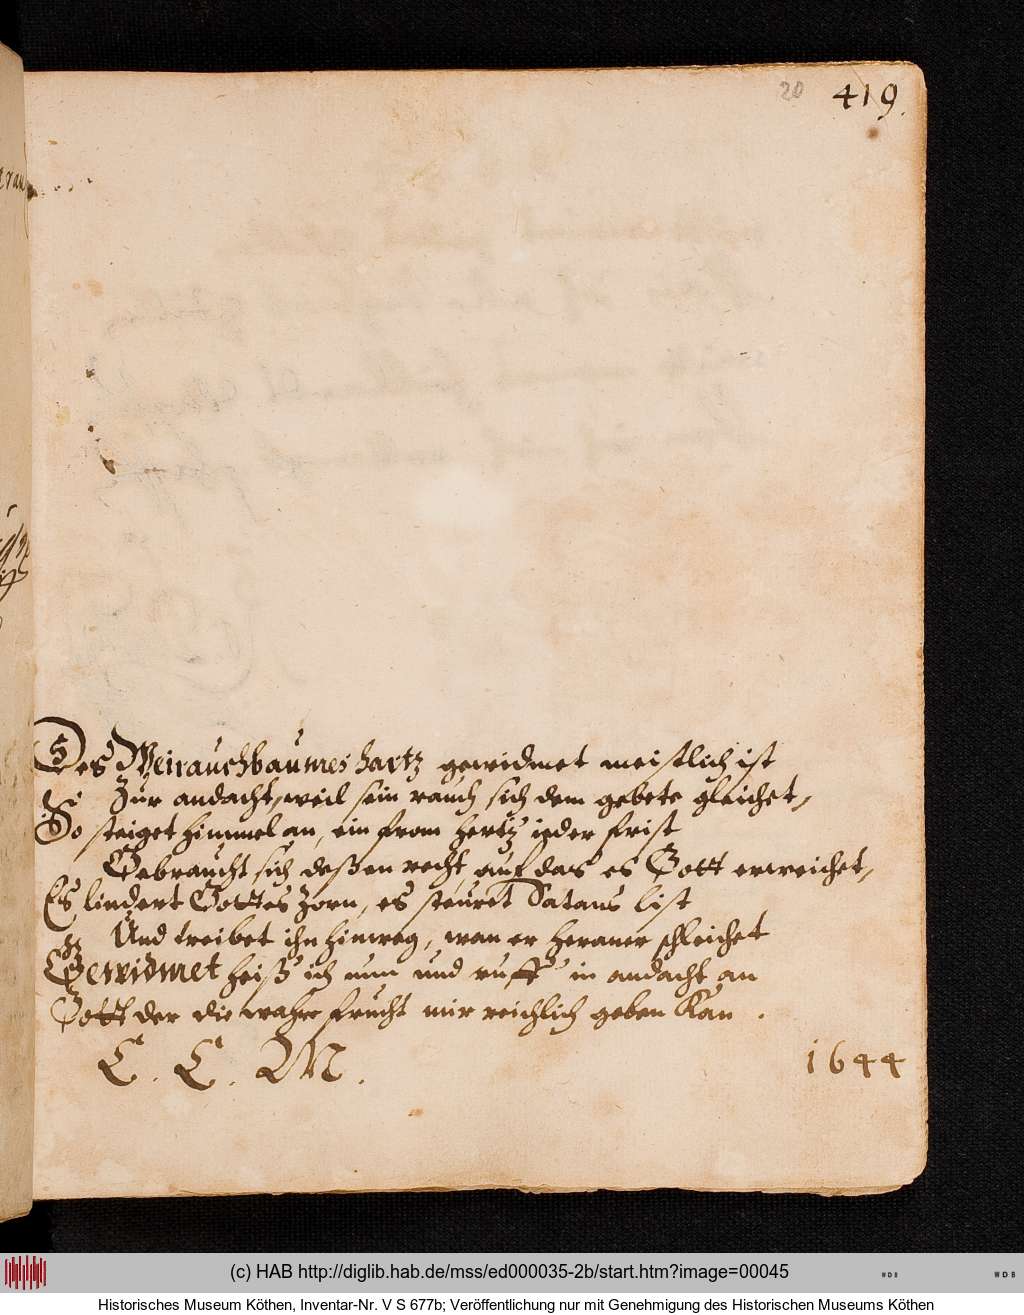 20 419.
Des Weirauchbaumes hartz gewidmet meistlich ist
Zur andacht, weil sein rauch sich dem gebete gleichet,
So steiget himmel an, ein from hertz ieder frist
Gebraucht sich deßen recht auf das es Gott erreichet,
Es lindert Gottes Zorn, es steuret Satans list
Und treibet ihn hinweg, wan er heraner schleichet
Gewidmet heiß ich nun und ruff in andacht an
Gott der die wahre frucht mir reichlich geben Kan.
C. C. M.
1644
(c) HAB http://diglib.hab.de/mss/ed000035-2b/start.htm?image=00045
WDB WDB
Historisches Museum Köthen, Inventar-Nr. V S 677b; Veröffentlichung nur mit Genehmigung des Historischen Museums Köthen